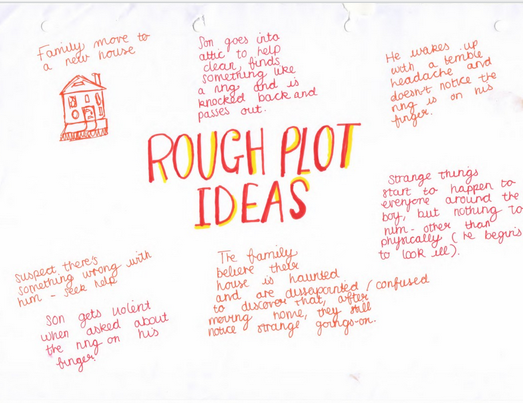 Family move to
a new house
Son goes into
attic to help
clean, finds
something like
a ring and is
knocked back and
passes out.
He wakes up
with a terrible
headache and
doesn't notice the
ring is on his
finger.
ROUGH PLOT
IDEAS
Strange things
start to happen to
everyone around the
boy, but nothing to
him - other than
physically (he begins
to look ill).
The family
believe their
house is haunted
and are dissapointed / confused
to discover that, after
moving home, they still
notice strange goings-on.
Suspect there's
something wrong with
him - seek help
Son gets violent
when asked about
the ring on his
finger